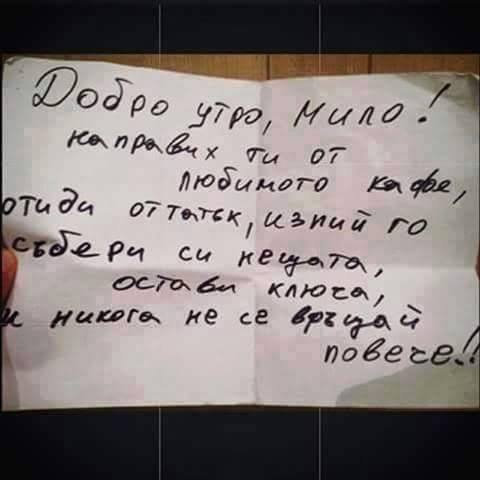 Добро утро, мило!
направих ти от
любимото кафе,
отиди оттатък, изпий го
събери си нещата,
остави ключа,
и никога не се връщай
повече!!